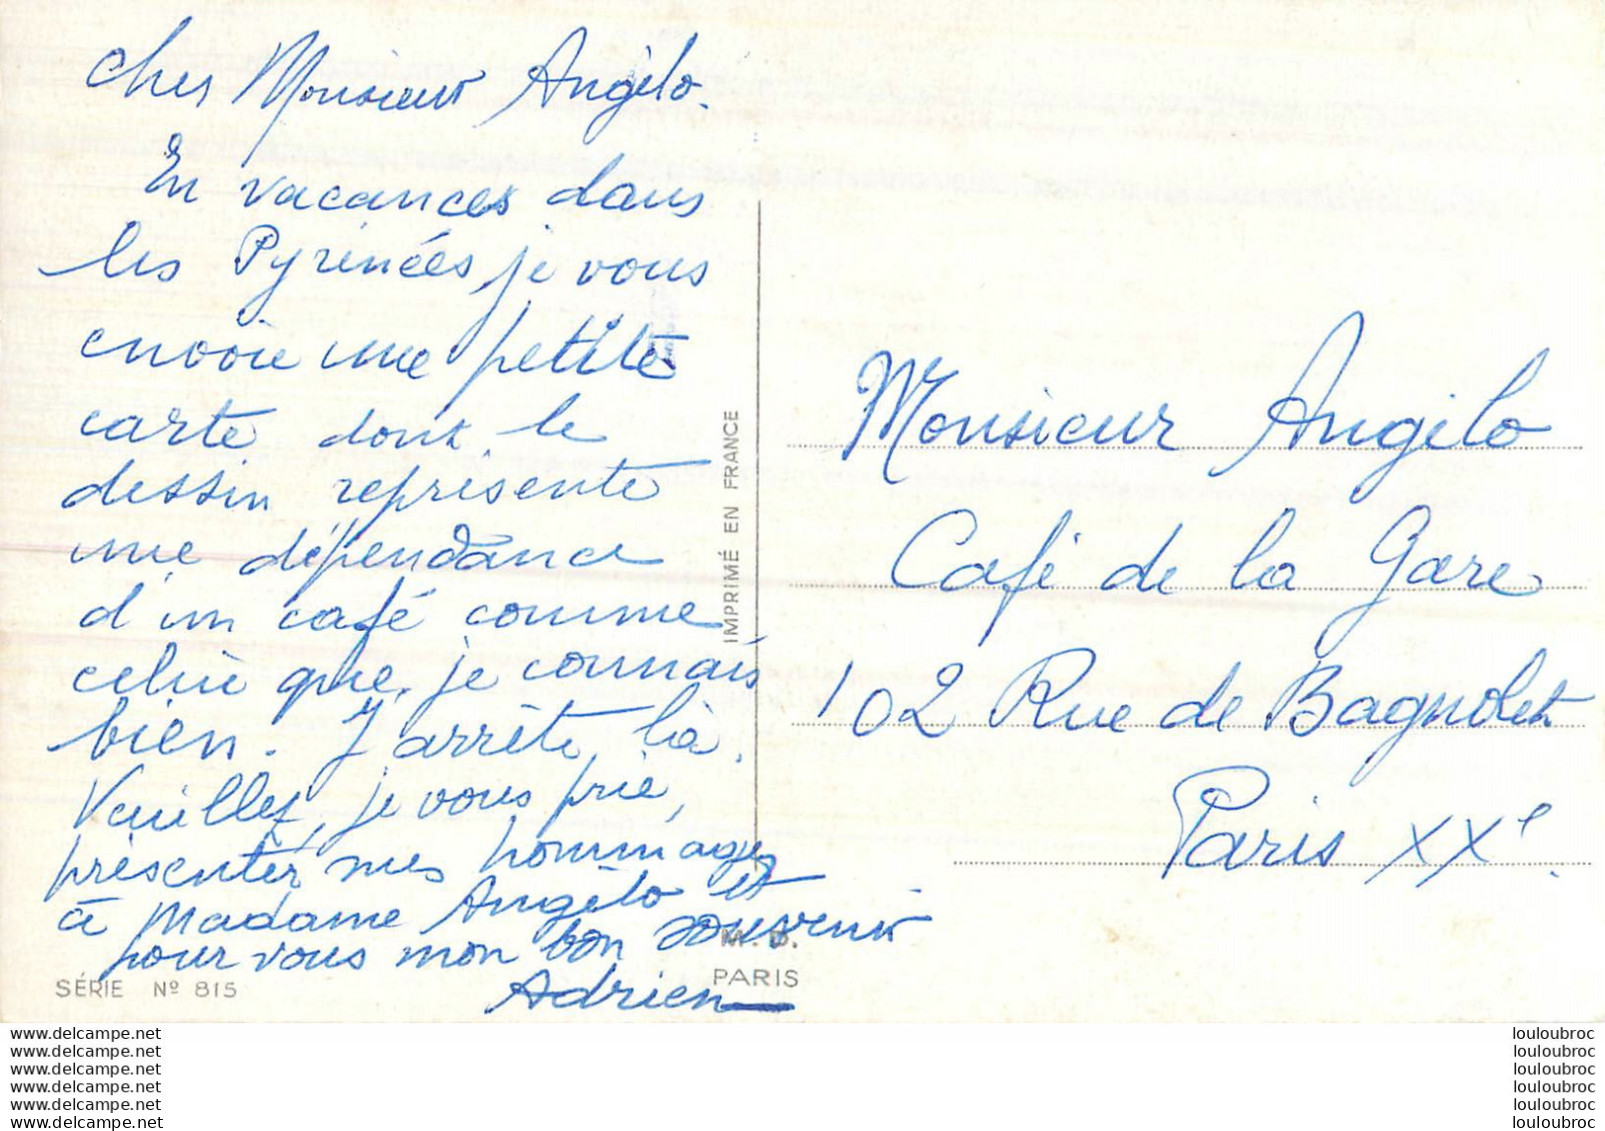 Cher Monsieur Angélo.
En vacances dans
les Pyrénées je vous
envoie une petite
carte dont le
dessin représente
une dépendance
d'un café comme
celui que je connais
bien. J'arrête là.
Veuillez, je vous prie,
présenter mes hommages
à Madame Angélo et
pour vous mon bon souvenir
Adrien
SÉRIE Nº 815
IMPRIMÉ EN FRANCE
M. D.
PARIS
Monsieur Angélo
Café de la Gare
102 Rue de Bagnolet
Paris XXe.
www.delcampe.net
www.delcampe.net
www.delcampe.net
www.delcampe.net
www.delcampe.net
www.delcampe.net
louloubroc
louloubroc
louloubroc
louloubroc
louloubroc
louloubroc